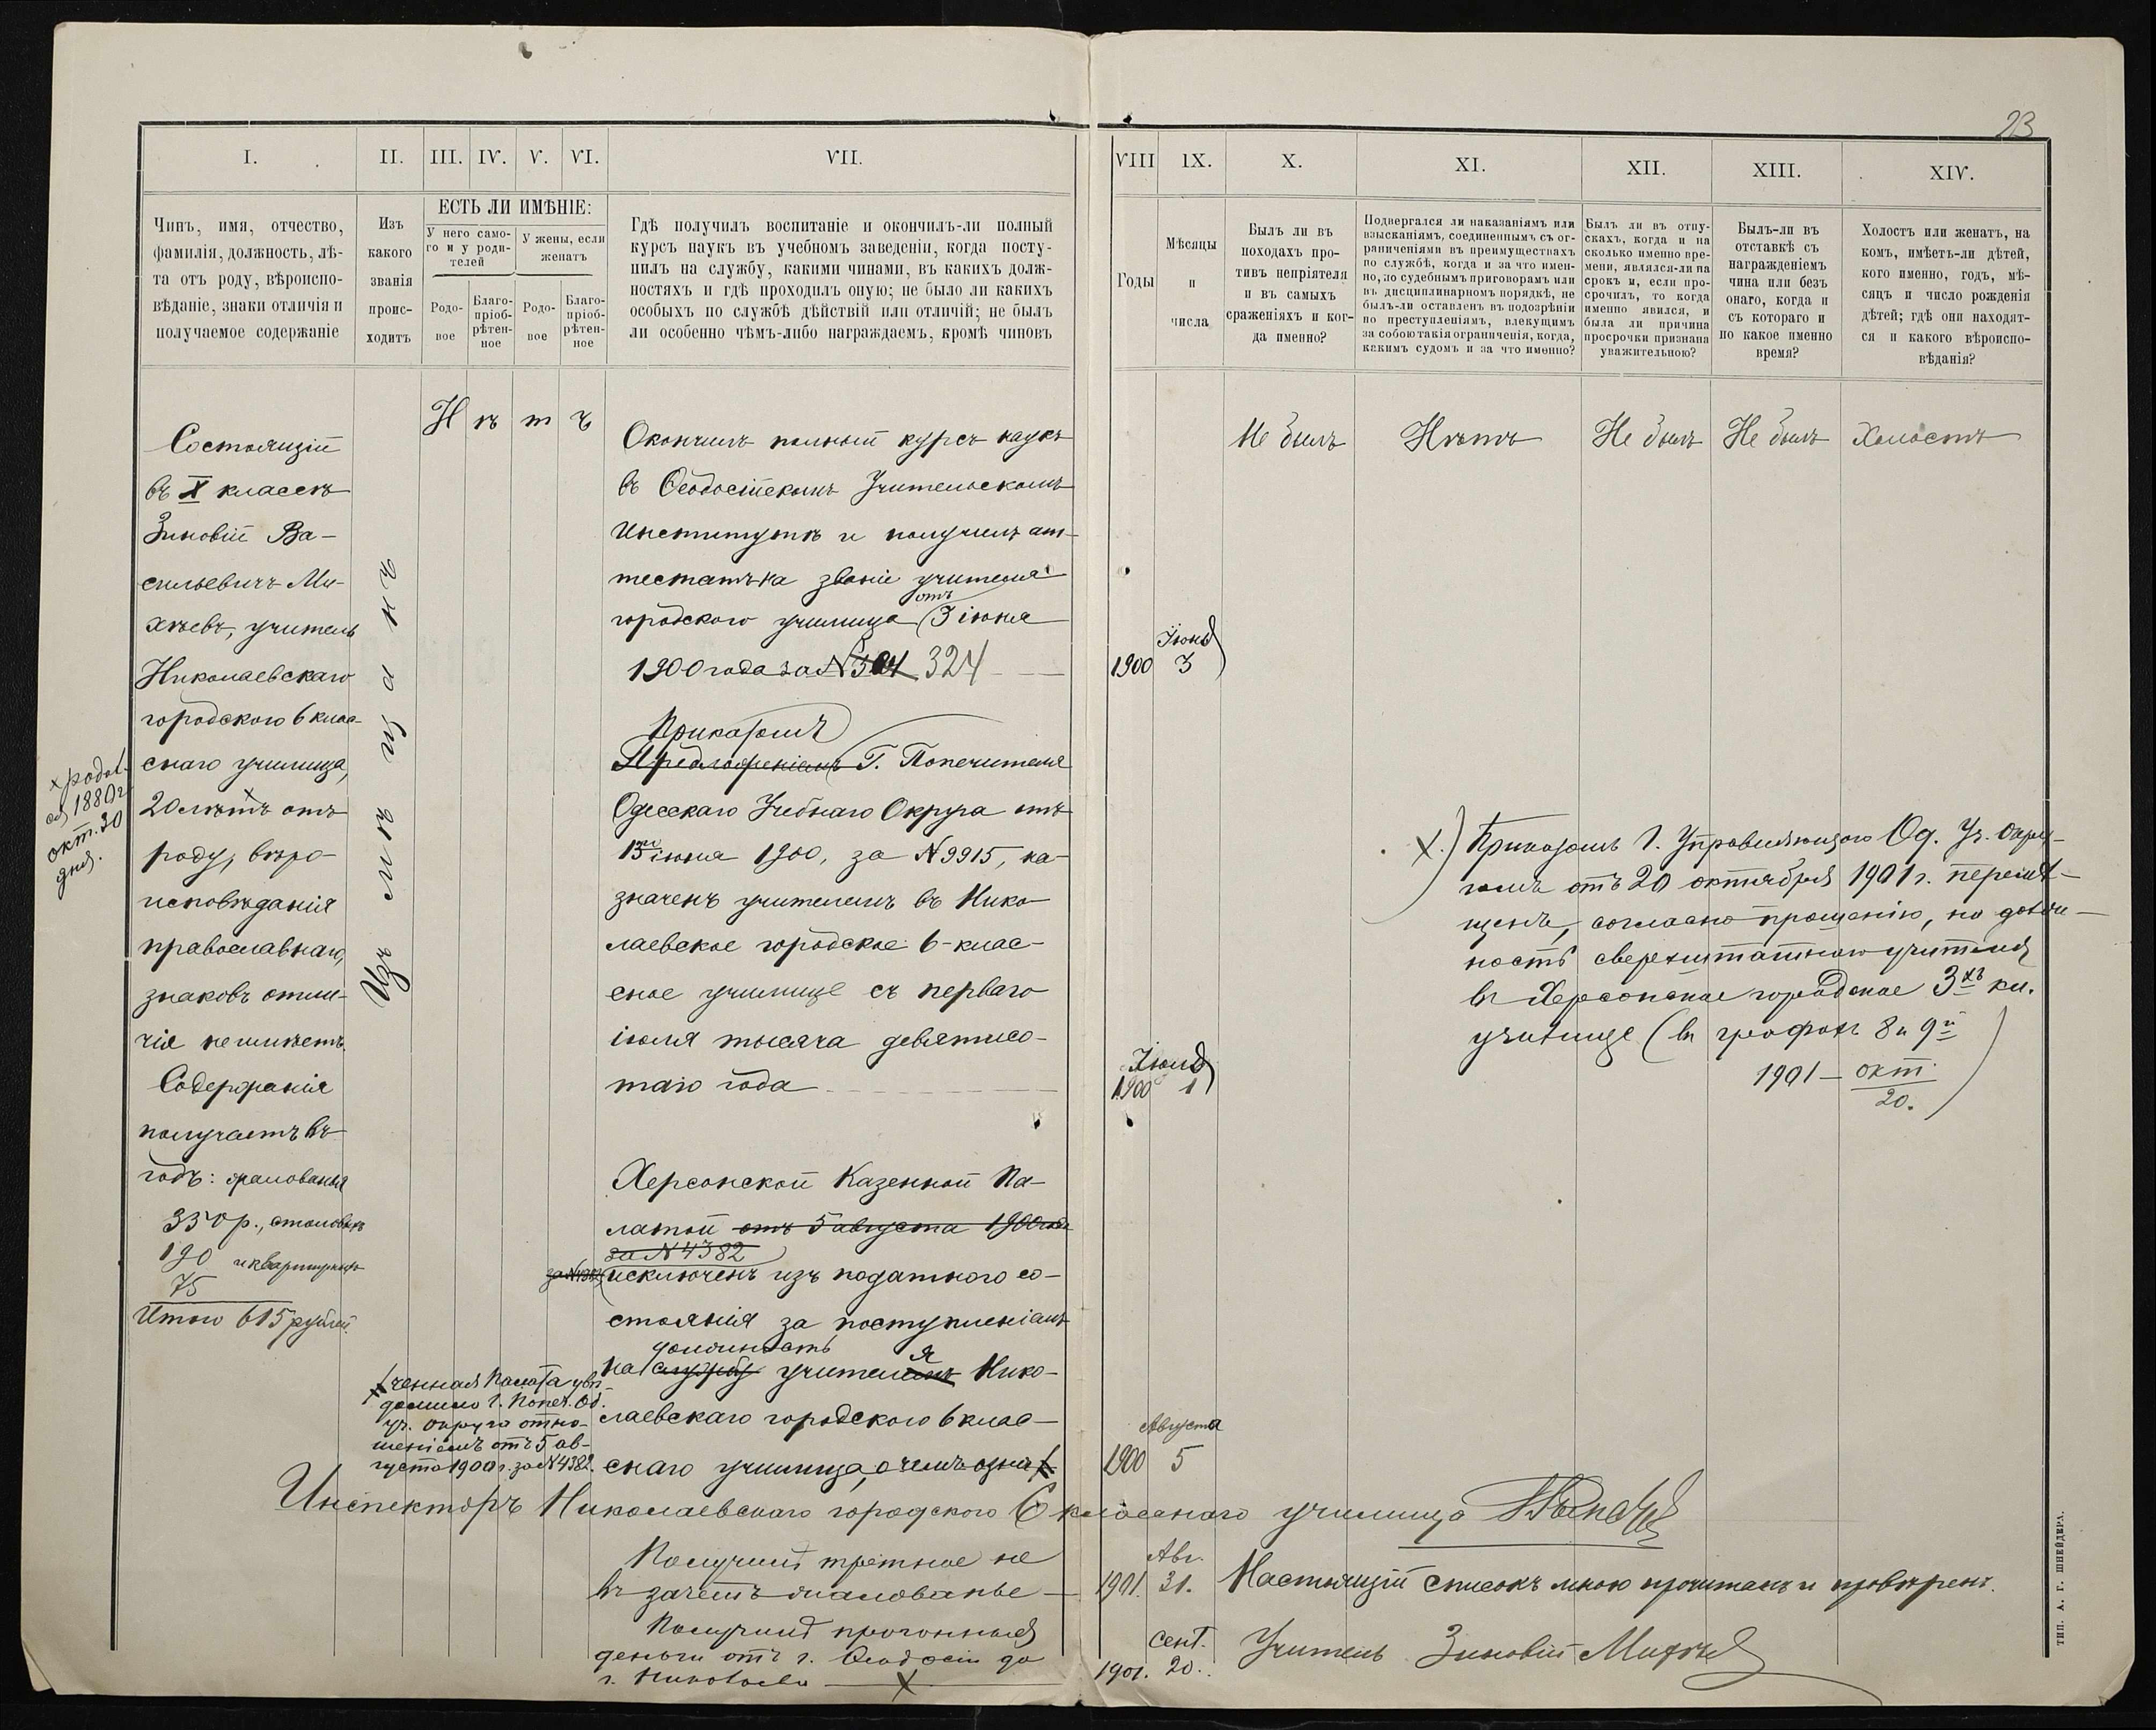 23
I.
II.
III.
IV.
V.
VI.
VII.
VIII
IX.
X.
XI.
XII.
XIII.
XIV.
Чинъ, имя, отчество,
фамилія, должность, лѣ-
та отъ роду, вѣроиспо-
вѣданіе, знаки отличія и
получаемое содержаніе
Изъ
какого
званія
проис-
ходитъ
ЕСТЬ ЛИ ИМѢНІЕ:
У него само-
го и у роди-
телей
У жены, если
женатъ
Родо-
вое
Благо-
пріоб-
рѣтен-
ное
Родо-
вое
Благо-
пріоб-
рѣтен-
ное
Гдѣ получилъ воспитаніе и окончилъ-ли полный
курсъ наукъ въ учебномъ заведеніи, когда посту-
пилъ на службу, какими чинами, въ какихъ долж-
ностяхъ и гдѣ проходилъ оную; не было ли какихъ
особыхъ по службѣ дѣйствій или отличій; не былъ
ли особенно чѣмъ-либо награждаемъ, кромѣ чиновъ
Годы
Мѣсяцы
и
числа
Былъ ли въ
походахъ про-
тивъ непріятеля
и въ самыхъ
сраженіяхъ и ког-
да именно?
Подвергался ли наказаніямъ или
взысканіямъ, соединеннымъ съ ог-
раниченіями въ преимуществахъ
по службѣ, когда и за что имен-
но, по судебнымъ приговорамъ или
въ дисциплинарномъ порядкѣ, не
былъ-ли оставленъ въ подозрѣніи
по преступленіямъ, влекущимъ
за собою такія ограниченія, когда,
какимъ судомъ и за что именно?
Былъ ли въ отпу-
скахъ, когда и на
сколько именно вре-
мени, являлся-ли на
срокъ и, если про-
срочилъ, то когда
именно явился, и
была ли причина
просрочки признана
уважительною?
Былъ-ли въ
отставкѣ съ
награжденіемъ
чина или безъ
онаго, когда и
съ котораго и
по какое именно
время?
Холостъ или женатъ, на
комъ, имѣетъ-ли дѣтей,
кого именно, годъ, мѣ-
сяцъ и число рожденія
дѣтей; гдѣ они находят-
ся и какого вѣроиспо-
вѣданія?
Состоящій
въ X классѣ
Зиновій Ва-
сильевичъ Ми-
хѣевъ, учитель
Николаевскаго
городского 6 клас-
снаго училища,
20 лѣтъ отъ
роду, вѣро-
исповѣданія
православнаго,
знаковъ отли-
чія не имѣетъ.
Содержанія
получаетъ въ
годъ: жалованья
350 р., столовыхъ
190 и квартирныхъ
75
Итого 615 рублей.
1880 г.
окт. 30
дня.
Изъ мѣщанъ
Н ѣ т ъ
Окончилъ полный курсъ наукъ
въ Ѳеодосійскомъ Учительскомъ
Институтѣ и получилъ ат-
тестатъ на званіе учителя
отъ
городского училища 3 іюня
1900 года за № 324
Приказомъ
Предложеніемъ Г. Попечителя
Одесскаго Учебнаго Округа отъ
іюня 1900, за № 9915, на-
значенъ учителемъ въ Нико-
лаевское городское 6-клас-
сное училище съ перваго
іюля тысяча девятисо-
таго года
Херсонской Казенной Па-
латой отъ 5 августа 1900 года
за № 4382
исключенъ изъ податного со-
стоянія за поступленіемъ
должность
на службу учителемъ я Нико-
лаевскаго городского 6 клас-
снаго училища, о чемъ озна
ченная Палата увѣ-
домила Г. Попеч. Од.
уч. округа отно-
шеніемъ отъ 5 ав-
густа 1900 г. за № 4382.
Іюня
1900 3
Іюля
1900 1
Августа
1900 5
Не былъ
Нѣтъ
Не былъ
Не былъ
Холостъ
X) Приказомъ Г. Управляющаго Од. Уч. Окру-
гомъ отъ 20 октября 1901 г. перемѣ-
щенъ, согласно прошенію, на долж-
ность сверхштатнаго учителя
въ Херсонское городское 3хъ кл.
училище (въ графахъ 8 и 9й
1901 — окт.
20.
Инспекторъ Николаевскаго городского 6 класснаго училища
Получилъ третное не
въ зачетъ жалованье
Авг.
1901. 31.
Настоящій списокъ мною прочитанъ и провѣренъ.
Получилъ прогонныя
деньги отъ г. Ѳеодосіи до
г. Николаева
Сент.
1901. 20.
Учитель Зиновій Михѣевъ
ТИП. А. Г. ШНЕЙДЕРА.